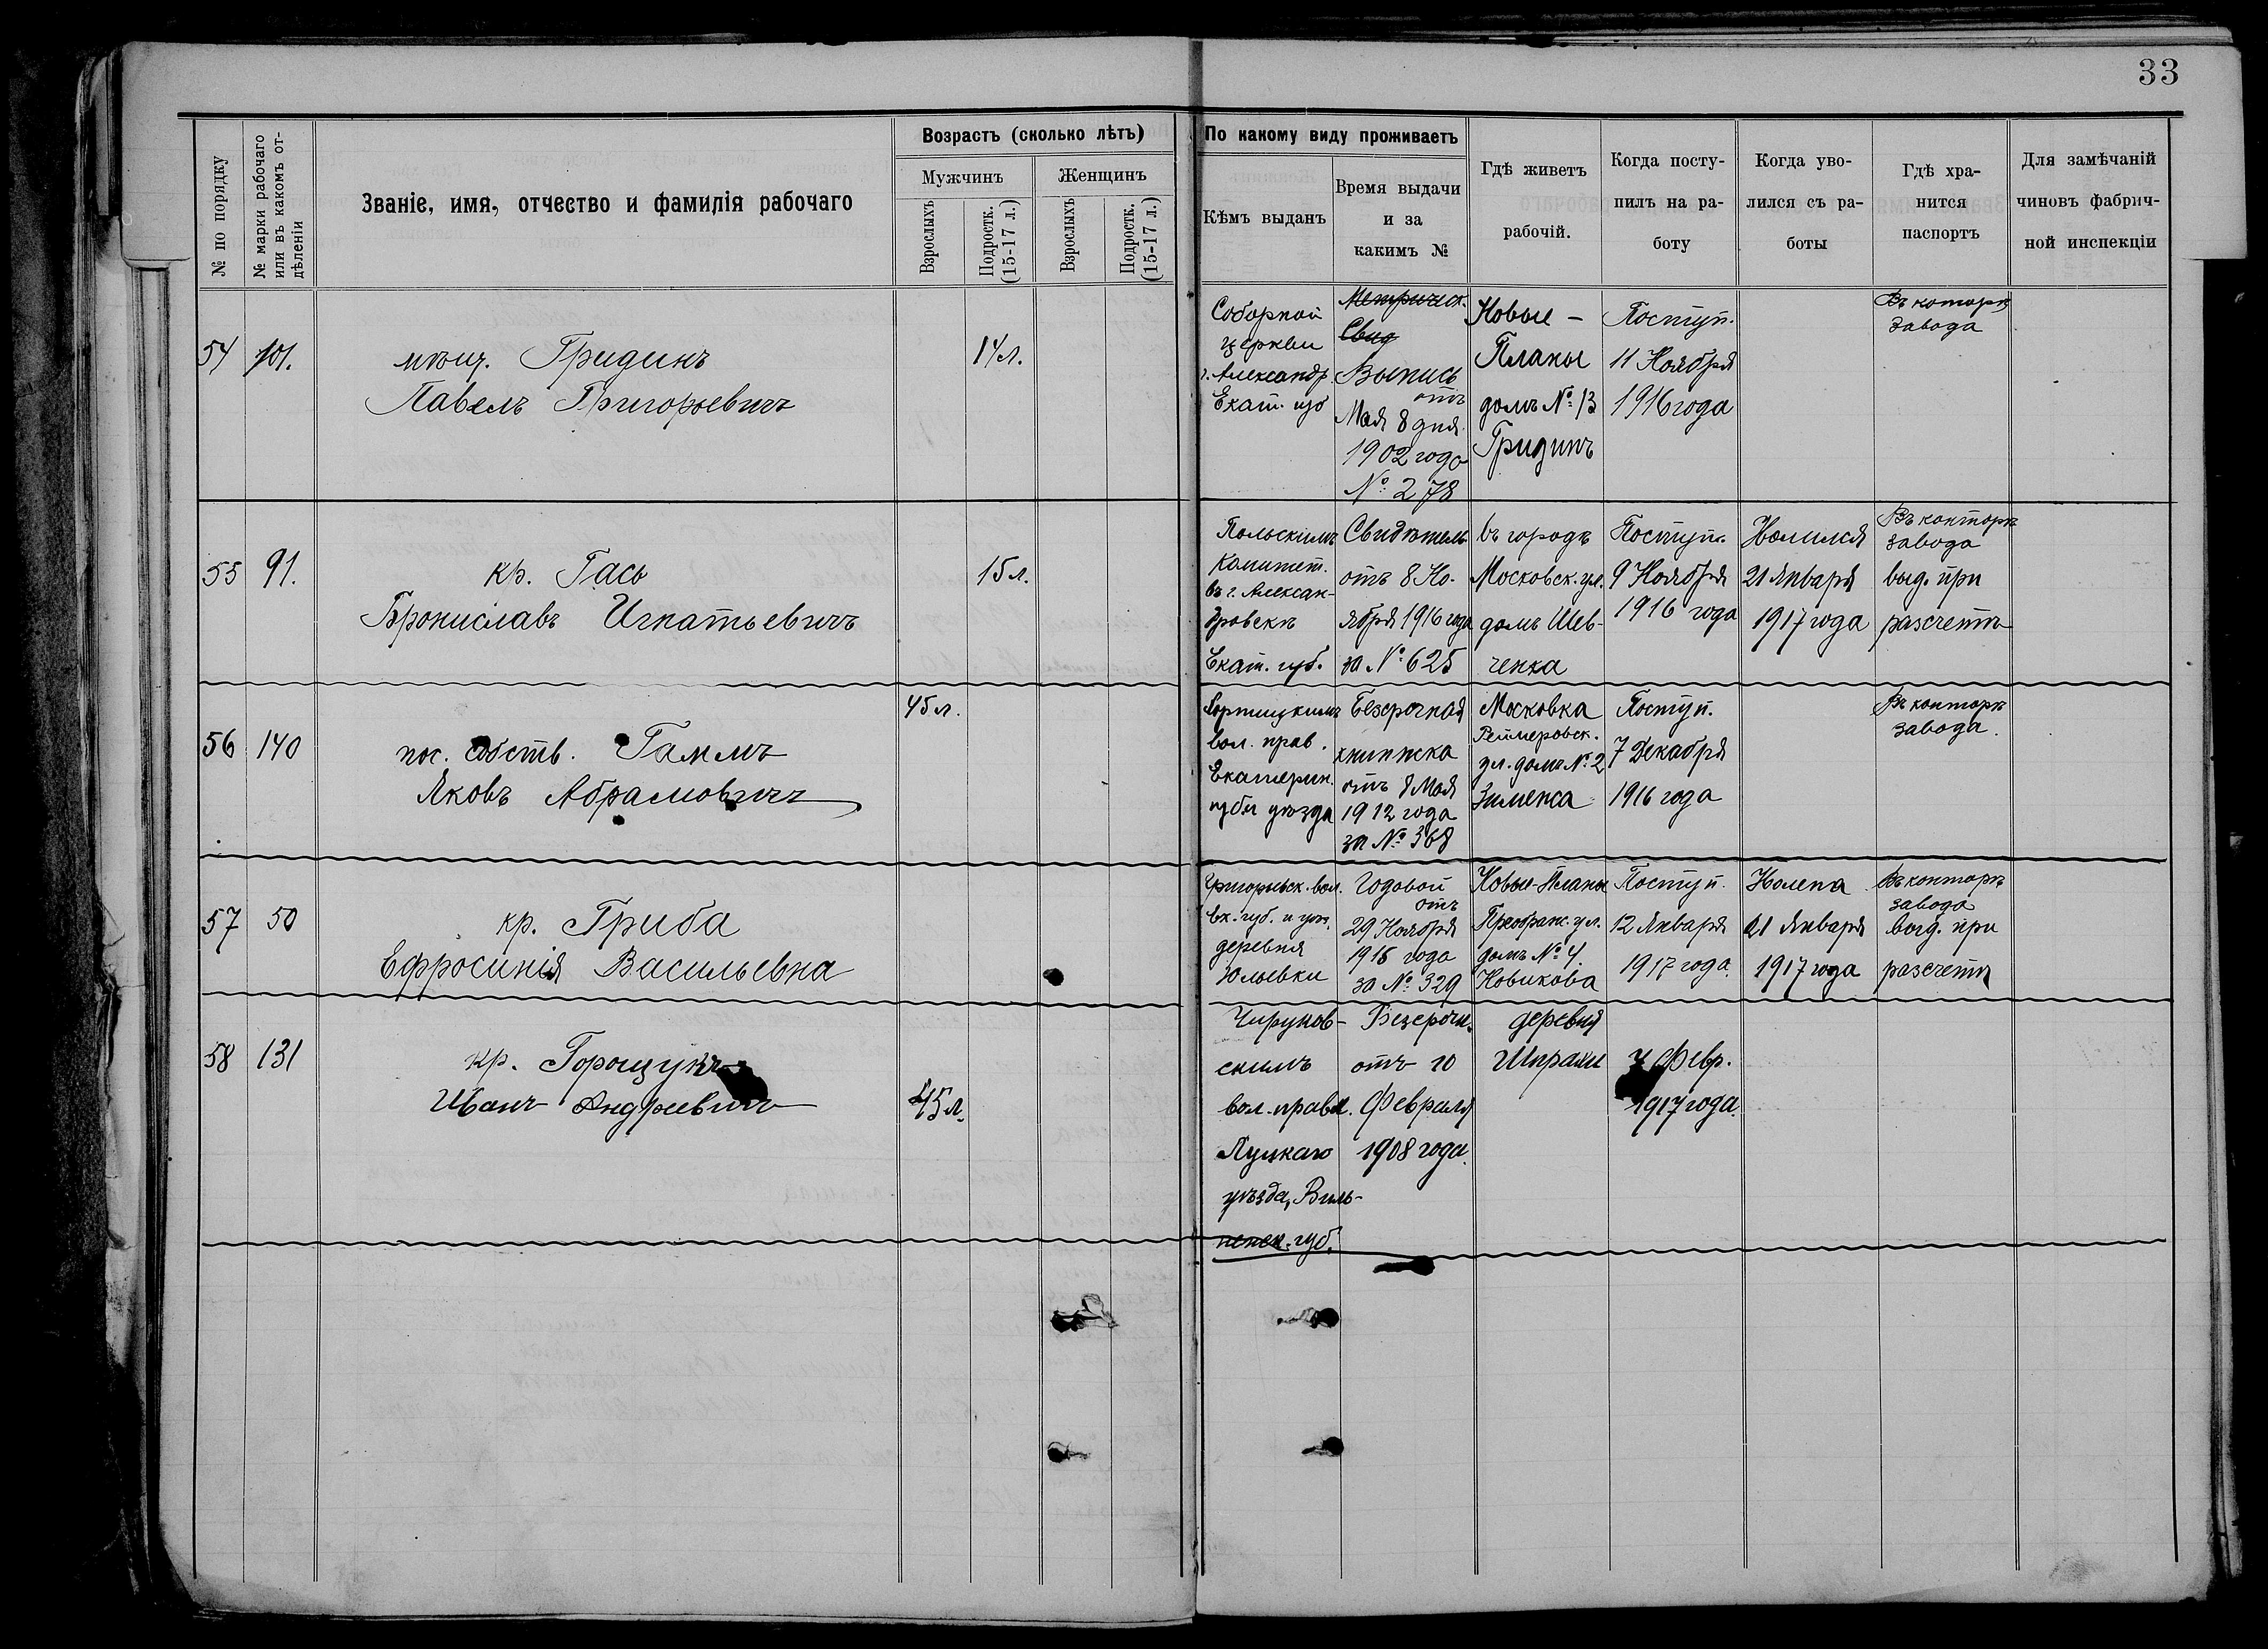 33
№ по порядку
№ марки рабочаго
или въ какомъ от-
дѣленіи
Званіе, имя, отчество и фамилія рабочаго
Возрастъ (сколько лѣтъ)
Мужчинъ
Женщинъ
Взрослыхъ
Подростк.
(15-17 л.)
Взрослыхъ
Подростк.
(15-17 л.)
По какому виду проживаетъ
Кѣмъ выданъ
Время выдачи
и за
какимъ №
Гдѣ живетъ
рабочій.
Когда посту-
пилъ на ра-
боту
Когда уво-
лился съ ра-
боты
Гдѣ хра-
нится
паспортъ
Для замѣчаній
чиновъ фабрич-
ной инспекціи
54
101.
мѣщ. Гридинъ
Павелъ Григорьевичъ
14 л.
Соборной
церкви
г. Александр.
Екат. губ
Метрическ.
Свид
Выпись
отъ
Мая 8 дня
1902 года
№ 278
Новые -
Планы
домъ № 13
Гридинъ
Поступ.
11 Ноября
1916 года
Въ конторѣ
завода
55
91.
кр. Гась
Брониславъ Игнатьевичъ
15 л.
Польскимъ
Комитет.
въ г. Алексан-
дровскѣ
Екат. губ.
Свидѣтель
отъ 8 Но-
ября 1916 года
за № 625
въ городѣ
Московск. ул.
домъ Шев-
ченка
Поступ.
9 Ноября
1916 года
21 Января
1917 года
Въ конторѣ
завода
выд. при
разсчетѣ
56
140
пос. собств. Гаммъ
Яковъ Абрамовичъ
45 л.
Хортицкимъ
вол. прав.
Екатерин.
губ и уѣзда
Безсрочная
книжка
отъ 8 Мая
1912 года
за № 368
Московка
Реймеровск.
ул. домъ № 2
Зименса
Поступ.
7 Декабря
1916 года
Въ конторѣ
завода.
57
50
кр. Гриба
Ефросинія Васильевна
Григорьевск. вол.
Ек. губ. и уѣз.
деревня
Юльевки
Годовой
отъ
29 Ноября
1916 года
за № 329
Новые-Планы
Преображ. ул.
домъ № 4.
Новикова
Поступ.
12 Января
1917 года.
21 Января
1917 года
Въ конторѣ
завода
выд. при
разсчетѣ
58
131
кр. Горощукъ
Иванъ Андреевичъ
45 л.
скимъ
вол. правл.
Луцкаго
уѣзда, Виль-
ненск. губ.
Безсрочн.
отъ 10
Февраля
1908 года.
деревня
Шираки
7 Февр.
1917 года.